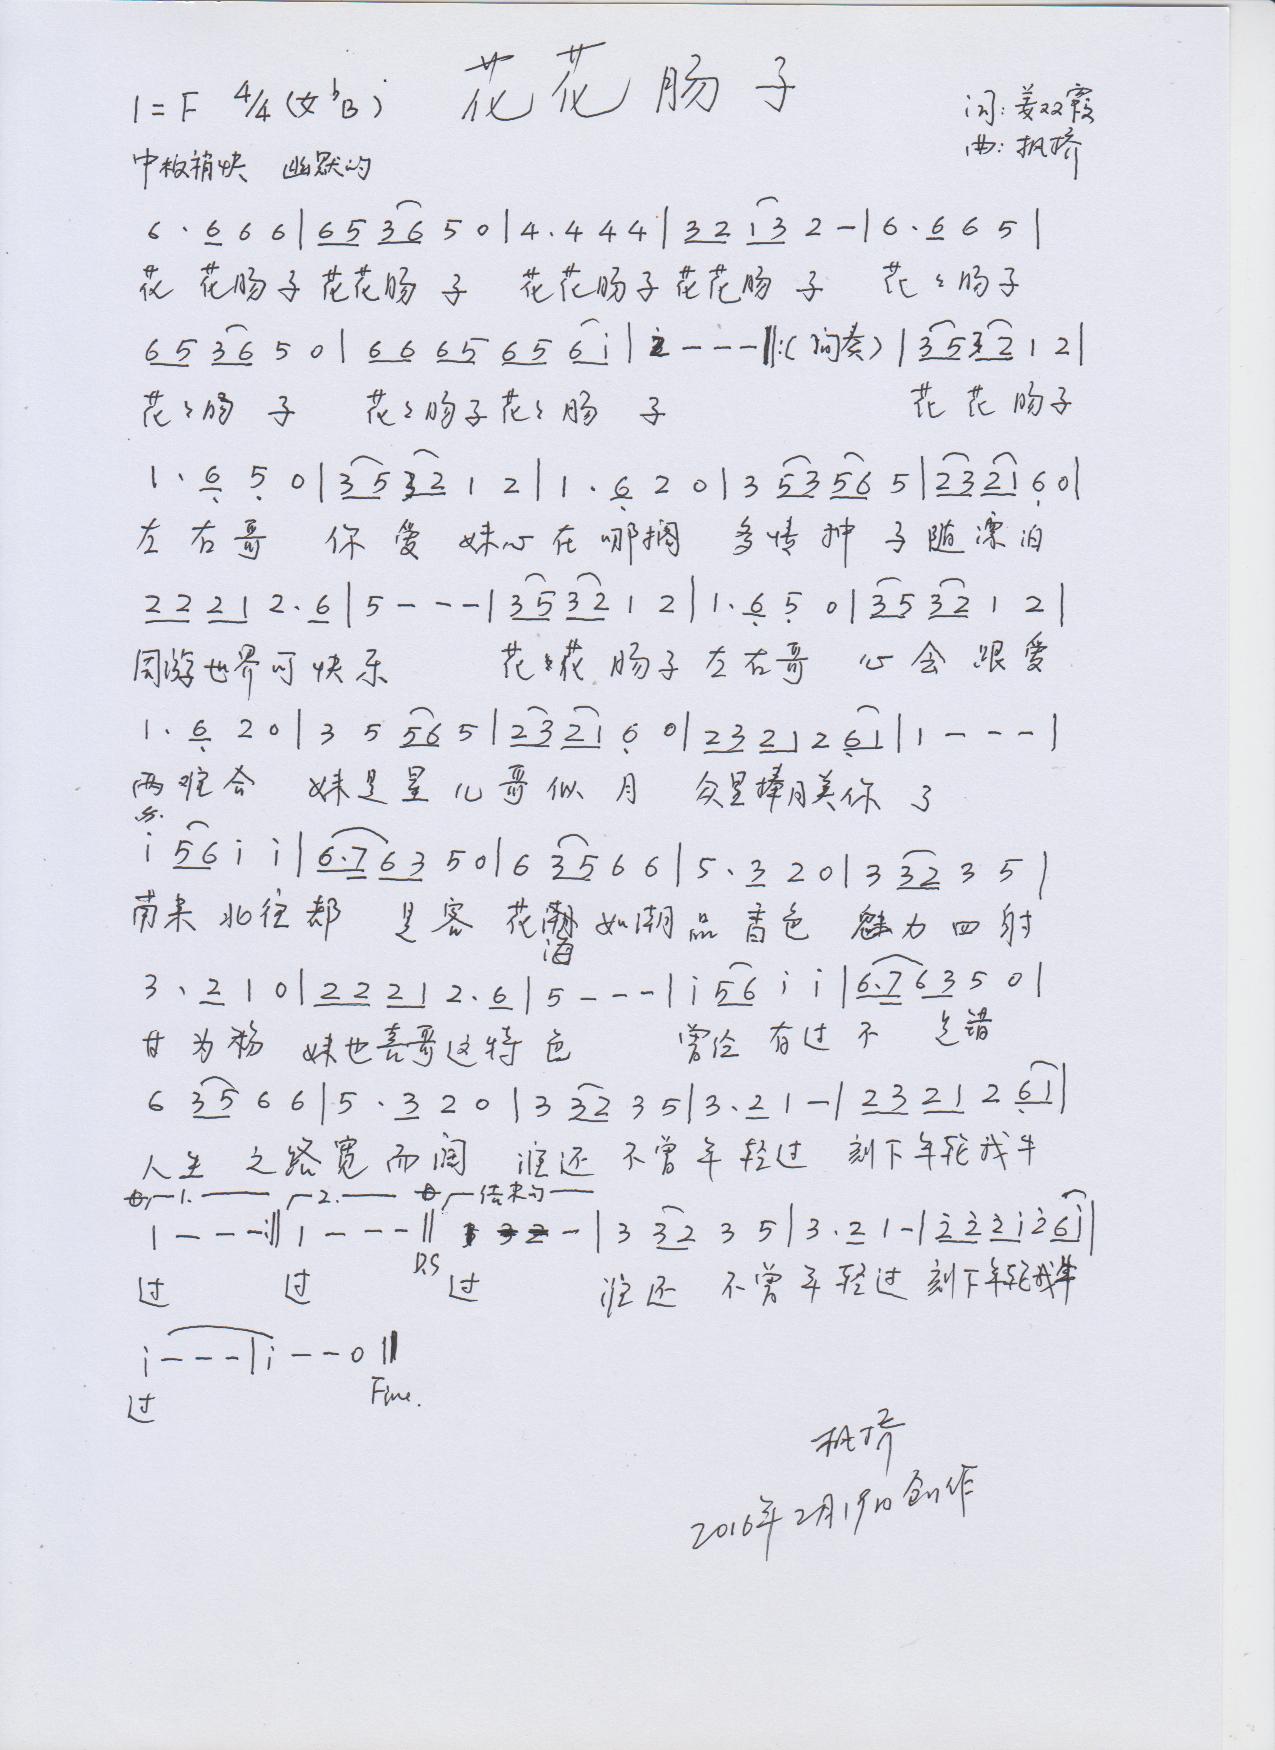 花花肠子
1=F 4/4 (女♭B)
词: 姜双霞
中板稍快 幽默的
曲: 枫桥
6 · 6 6 6 | 65 36 5 0 | 4 . 4 4 4 | 32 13 2 - | 6 . 6 6 5 |
花 花肠子 花花肠 子 花花肠子花花肠 子 花々肠子
65 36 5 0 | 66 65 65 6i | 2 - - - :‖ (间奏) | 35 32 1 2 |
花々肠 子 花々肠子花々肠 子 花 花 肠子
1 · 6 5 0 | 35 32 1 2 | 1 . 6 2 0 | 3 53 56 5 | 23 21 6 0 |
左 右哥 你 爱 妹心在哪搁 多情种 子随漂泊
22 21 2 . 6 | 5 - - - | 35 32 1 2 | 1 . 6 5 0 | 35 32 1 2 |
周游世界可快乐 花花 肠子左右哥 心 会 跟爱
1 . 6 2 0 | 3 5 56 5 | 23 21 6 0 | 23 21 2 61 | 1 - - - |
两难会 妹是星儿哥似 月 众星捧月美你 了
i 56 i i | 6.7 63 5 0 | 6 35 6 6 | 5 . 3 2 0 | 3 32 3 5 |
南来北往都 是客 花海如潮品香色 魅力四射
3 . 2 1 0 | 22 21 2 . 6 | 5 - - - | i 56 i i | 6.7 63 5 0 |
甘为 妹也喜哥这特色 曾经有过不 是错
6 35 6 6 | 5 . 3 2 0 | 3 32 3 5 | 3 . 2 1 - | 23 21 2 61 |
人生 之路宽而阔 谁还 不曾年轻过 刻下年轮我牛
1. 2. 结束句
1 - - - :‖ 1 - - - ‖ - | 3 32 3 5 | 3 . 2 1 - | 22 2i 2 6i |
D.S
过 过 过 谁还 不曾年轻过 刻下年轮我牛
i - - - | i - - 0 ‖
过 Fine.
枫桥
2016年2月19日创作